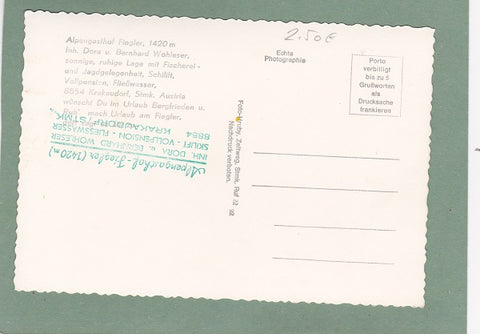 Alpengasthof Fiegler, 1420 m
Inh. Dora u. Bernhard Wohleser,
sonnige, ruhige Lage mit Fischerei-
und Jagdgelegenheit, Schilift,
Vollpension, Fließwasser,
8854 Krakaudorf, Stmk. Austria
wünscht Du im Urlaub Bergfrieden u.
mach Urlaub am Fiegler.
2.50 €
Echte
Photographie
Porto
verbilligt
bis zu 5
Grußworten
als
Drucksache
frankieren
Zeltweg, Stmk. Ruf 22 92
Nachdruck verboten.
Alpengasthof Fiegler (1420 m)
INH. DORA u. BERNHARD WOHLESER
SKILIFT - VOLLPENSION - FLIESSWASSER
8854 KRAKAUDORF/STMK.